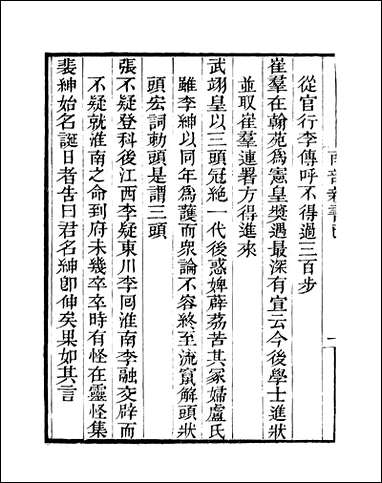 從官行李傳呼不得過三百步
崔羣在翰苑爲憲皇奬遇最深有宣云今後學士進狀
並取崔羣連署方得進來
武翊皇以三頭冠絶一代後惑婢薜荔苦其冢婦盧氏
雖李紳以同年爲護而衆論不容終至流竄解頭狀
頭宏詞勅頭是謂三頭
張不疑登科後江西李疑東川李回淮南李融交辟而
不疑就淮南之命到府未幾卒卒時有怪在靈怪集
裴紳始名誕日者告曰君名紳卽伸矣果如其言